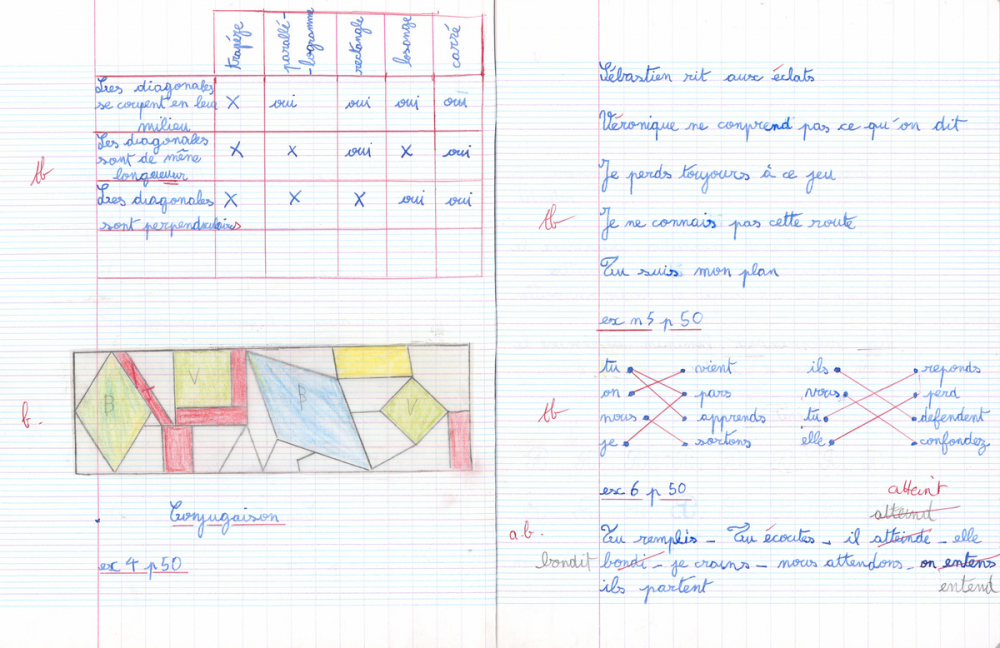 trapèze
parallé-
-logramme
rectangle
losange
carré
Les diagonales
se coupent en leur
milieu
X oui oui oui oui
Les diagonales
sont de même
longueur
X X oui X oui
tb
Les diagonales
sont perpendiculaires
X X X oui oui
b.
B
V
B
V
Conjugaison
ex 4 p 50
Sébastien rit aux éclats
Véronique ne comprend pas ce qu'on dit
Je perds toujours à ce jeu
tb
Je ne connais pas cette route
Tu suis mon plan
ex n 5 p 50
tu vient ils reponds
on pars vous perd
tb
nous apprends tu défendent
je sortons elle confondez
ex 6 p 50
atteint
attend
a.b.
Tu remplis - Tu écoutes, il atteinde - elle
bondit bondi - je crains - nous attendons - on entens
ils partent entend